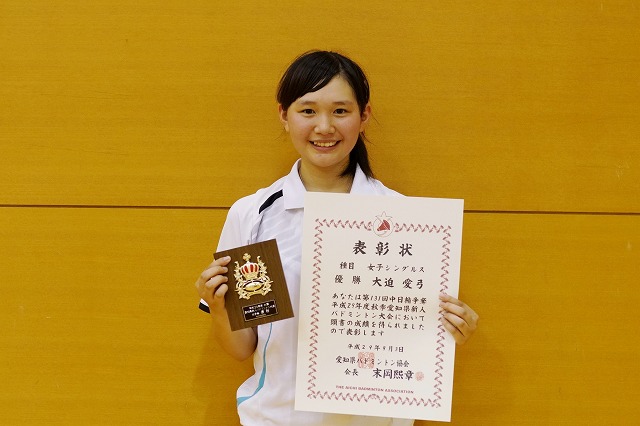 表彰状
種目 女子シングルス
優勝 大迫 愛弓
あなたは第131回中日楯争奪
平成29年度秋季愛知県新人
バドミントン大会において
頭書の成績を得られました
ので表彰します
平成29年9月3日
愛知県バドミントン協会
会長 末岡熙章
THE AICHI BADMINTON ASSOCIATION